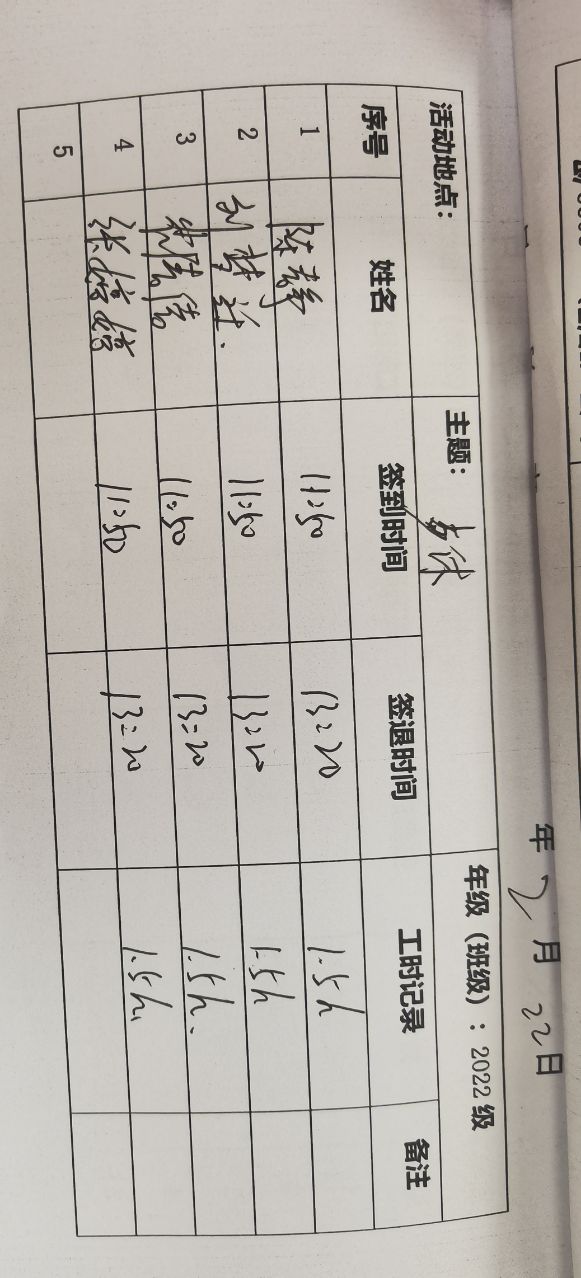 年 2月 22日
活动地点： 主题： 年级（班级）：2022级
序号 姓名 签到时间 签退时间 工时记录 备注
1 陈 11:50 13:20 1.5h
2 刘梦 11:50 13:20 1.5h
3 11:50 13:20 1.5h.
4 张 11:50 13:20 1.5h.
5